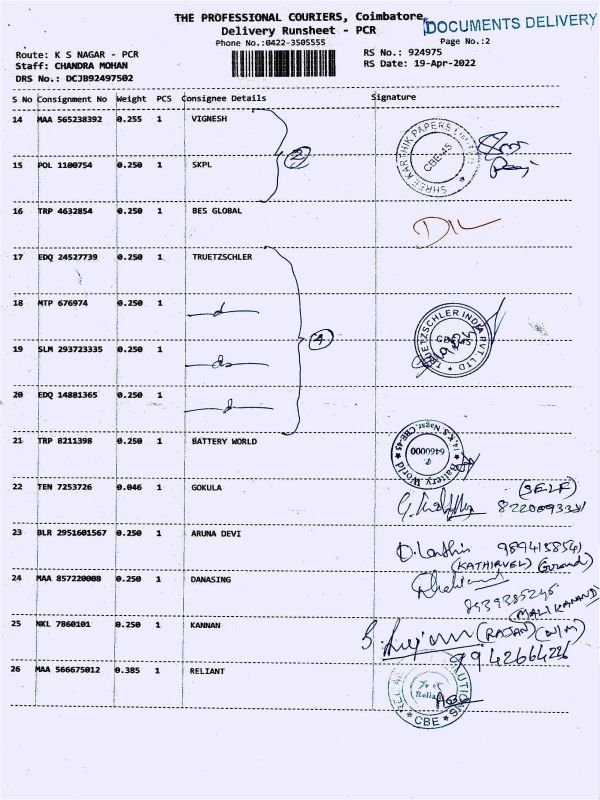 THE PROFESSIONAL COURIERS, Coimbatore,
Delivery Runsheet - PCR
DOCUMENTS DELIVERY
Phone No.:0422-3505555
Page No.:2
Route: K S NAGAR - PCR
RS No.: 924975
Staff: CHANDRA MOHAN
RS Date: 19-Apr-2022
DRS No.: DCJB92497502
S No Consignment No Weight PCS Consignee Details Signature
14 MAA 565238392 0.255 1 VIGNESH
2
SHREE KARTHIK PAPERS LIMITED
CBE-45
15 POL 1100754 0.250 1 SKPL
16 TRP 4632854 0.250 1 BES GLOBAL
17 EDQ 24527739 0.250 1 TRUETZSCHLER
18 MTP 676974 0.250 1
4
TRUETZSCHLER INDIA PVT. LTD
CBE-45
19 SLM 293723335 0.250 1
20 EDQ 14881365 0.250 1
21 TRP 8211398 0.250 1 BATTERY WORLD
Battery World
14, K.S. Nagar, CBE-45
6460000
22 TEN 7253726 0.046 1 GOKULA
(SELF)
23 BLR 2951601567 0.250 1 ARUNA DEVI
(KATHIRVEL)
24 MAA 857220008 0.250 1 DANASING
8939385246
25 NKL 7860101 0.250 1 KANNAN
(RAJAN)
9942664226
26 MAA 566675012 0.385 1 RELIANT
Reliant
CBE